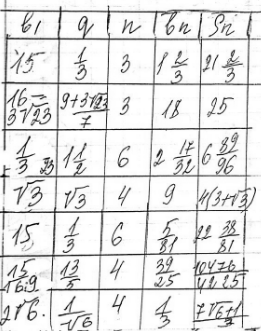 b1 q n bn Sn
15 1/3 3 1 2/3 21 2/3
16-3√23 9+3√23/7 3 18 25
1/3 1 1/2 6 2 17/32 6 89/96
√3 √3 4 9 4(3+√3)
15 1/3 6 5/81 22 38/81
13/5 4 39/25
2√6 1/√6 4 1/3